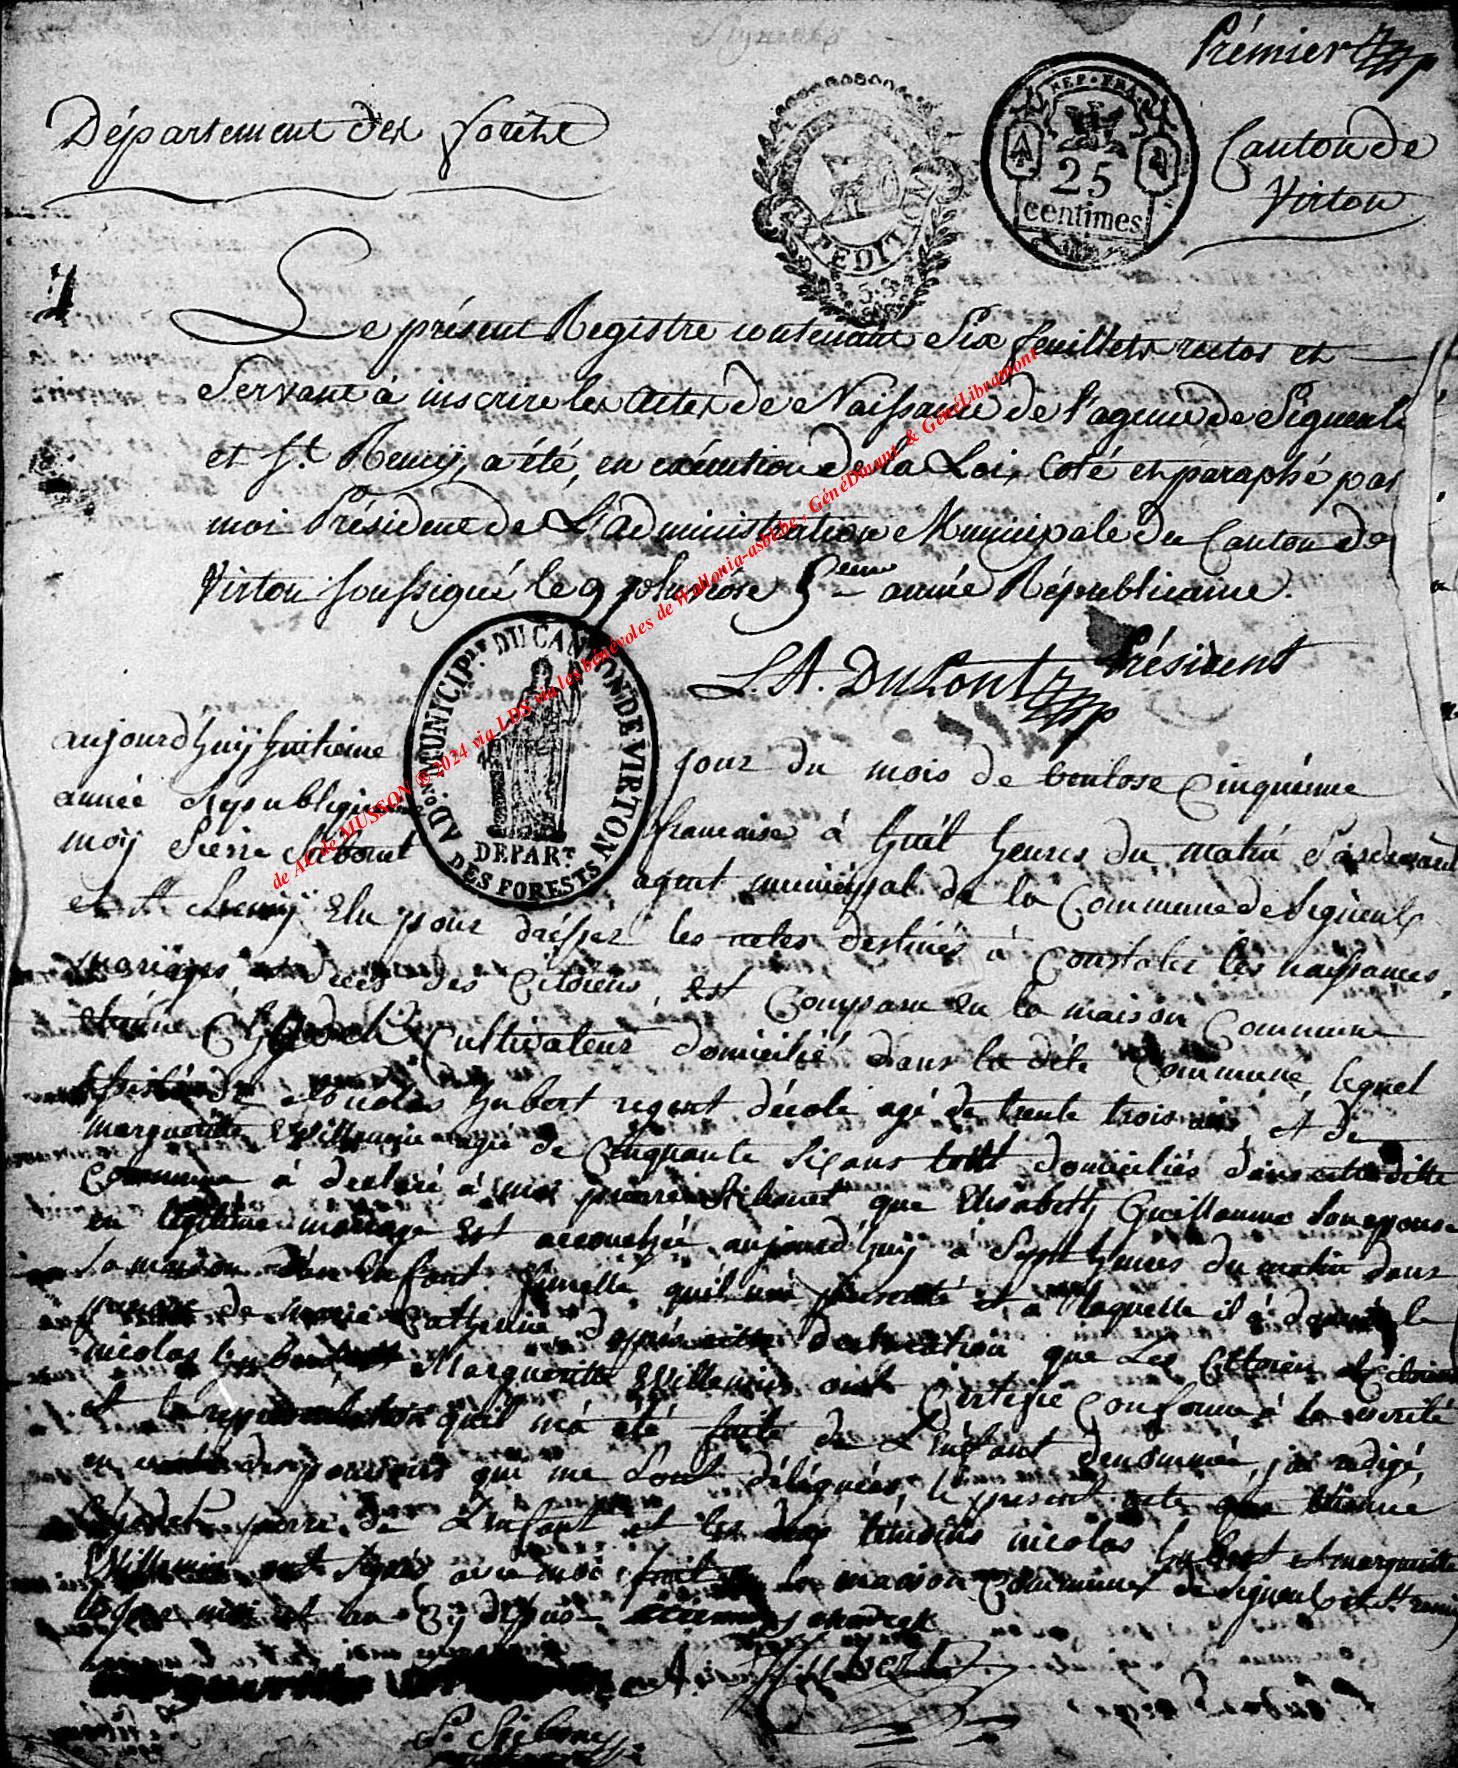 Prémier
Département des forêts
EXPEDITION
REP. FRA.
25
centimes
Canton de
Virton
Le présent Registre contenant Six feuillets rectos et
Servant à inscrire les Actes de Naissance de l'agence de Signeulx
et St. Remy, a été, en exécution de la Loi, coté et paraphé par
moi Président de L'administration Municipale du Canton de
Virton soussigné le 9 pluviose 5eme année Républicaine.
L. A. Dulont Président
ADON. MUNICIPle. DU CANTON DE VIRTON
DEPART.
DES FORESTS
aujourd'huÿ huitieme jour du mois de ventose cinquieme
année republiquaine francaise à huit heures du matin pardevant
moÿ Pierre agent municipal de la Commune de Signeulx
et St remÿ Elu pour dresser les actes destinés à Constater les naissances,
mariages, et décès des Citoiens, est Comparu en la maison Commune
etienne Cultivateur domicilié dans la dite Commune, lequel
assisté de nicolas hubert regent décole agé de trente trois ans, et de
margueritte Willemin agée de Cinquante six ans touts domiciliés dans ditte
Commune à declaré à moi pierre que Elisabeth Guillaume son epouse
en légitime mariage est accouchée aujourd'huÿ à sept heures du matin dans
sa maison d'un Enfant femelle quil m'a presenté et a laquelle il a donné le
prenom de marie Catherine, d'après cette declaration que Les Citoien et Citoienne
nicolas hubert et Margueritte Willemin ont Certifié Conforme à la verité
et la representation quil m'a été faite de L'enfant denommée, j'ai redigé,
en vertu des pouvoirs qui me sont délégués, le present acte que etienne
perre de L'enfant et les deux temoins nicolas hubert et margueritte
Willemin ont signés avec moi fait en la maison Commune de signeulx et St remÿ
les jour mois et an
hubert
de AC de MUSSON © 2024 via LDS via les bénévoles de Wallonia-asbl.be , GénéDinant & GénéLibramont